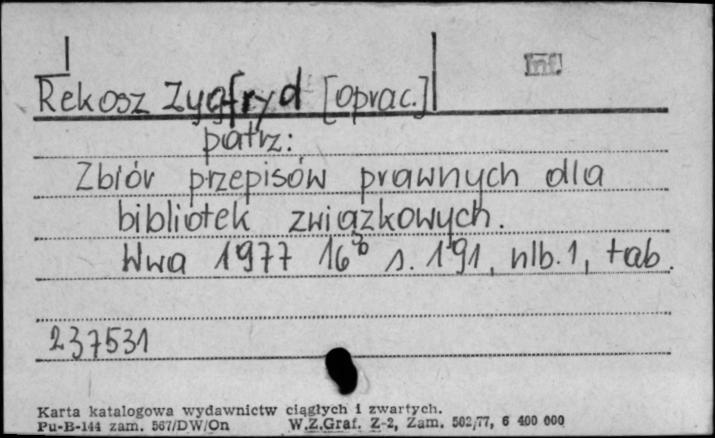 Inf.
Rekosz Zygfryd [oprac.]
patrz:
Zbiór przepisów prawnych dla
bibliotek związkowych.
Wwa 1977 16° s. 191, nlb. 1, tab.
237531
Karta katalogowa wydawnictw ciągłych i zwartych.
Pu-B-144 zam. 567/DW/On W.Z.Graf. Z-2, Zam. 502/77, 6 400 000